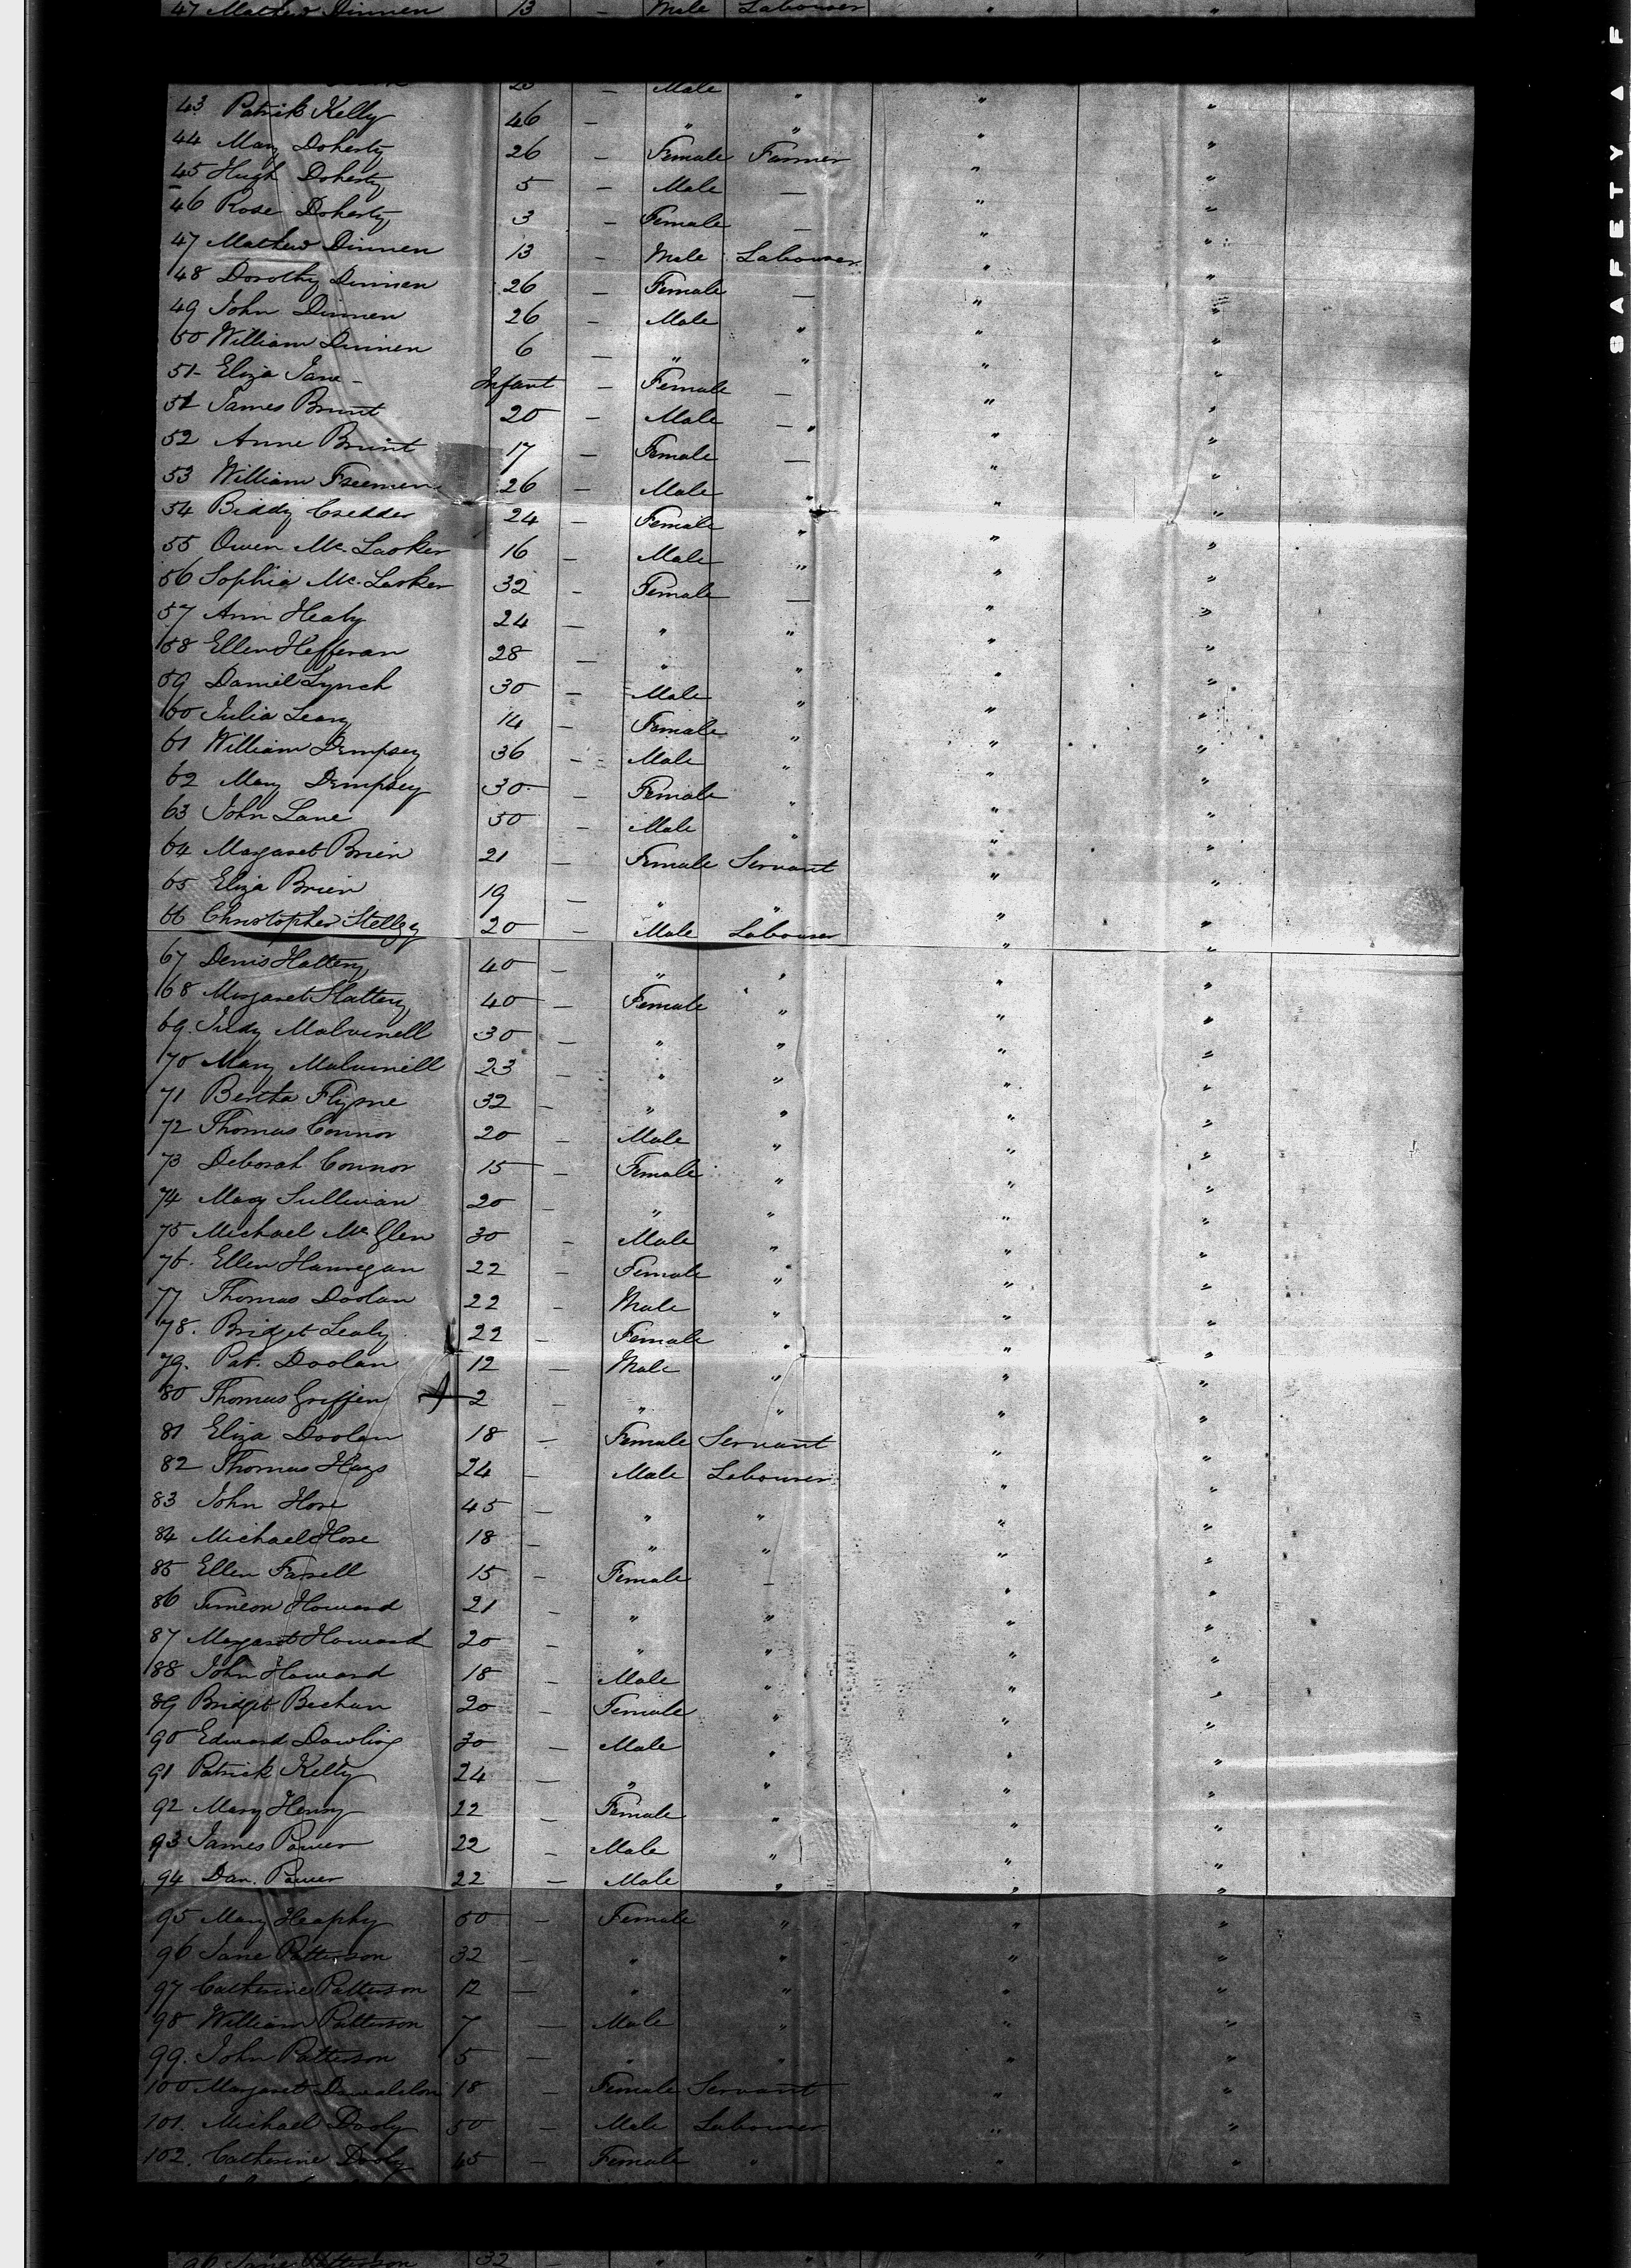 47 Mathew Dinnen 13 — Male Labourer " "
Male " " "
43 Patrick Kelly 46 — " " " "
44 Mary Doherty 26 — Female Farmer " "
45 Hugh Doherty 5 — Male — " "
46 Rose Doherty 3 — Female — " "
47 Mathew Dinnen 13 — Male Labourer " "
48 Dorothy Dinnen 26 — Female — " "
49 John Dinnen 26 — Male " " "
50 William Dinnen 6 — " " " "
51 - Eliza Jane - Infant — Female — " "
51 James Brunt 20 — Male — " " "
52 Anne Brunt 17 — Female — " "
53 William Freemen 26 — Male " " "
54 Biddy 24 — Female " " "
55 Owen Mc. Lasker 16 — Male " " "
56 Sophia Mc. Lasker 32 — Female — " "
57 Ann Healy 24 — " " " "
58 Ellen Hefferan 28 — " " " "
59 Daniel Lynch 30 — Male " " "
60 Julia Leary 14 — Female " " "
61 William Dempsey 36 — Male " " "
62 Mary Dempsey 30 — Female " " "
63 John Lane 50 — Male " " "
64 Margaret Brien 21 — Female Servant " "
65 Eliza Brien 19 — " " " "
66 Christopher 20 — Male Labourer " "
67 Denis 40 — " " " "
68 Margaret Slattery 40 — Female " " "
69. Judy Mulvinell 30 — " " " "
70 Mary Mulvinell 23 — " " " "
71 Bertha Flynne 32 — " " " "
72 Thomas Connor 20 — Male " " "
73 Deborah Connor 15 — Female " " "
74 Mary Sullivan 20 — " " " "
75 Michael Mc Glen 30 — Male " " "
76. Ellen Hannegan 22 — Female " " "
77 Thomas Doolan 22 — Male " " "
78. Bridget Lealy 22 — Female " " "
79. Pat. Doolan 12 — Male " " "
80 Thomas Griffen 2 — " " " "
81 Eliza Doolan 18 — Female Servant " "
82 Thomas Hays 24 — Male Labourer " "
83 John Hore 45 — " " " "
84 Michael Hore 18 — " " " "
85 Ellen Farrell 15 — Female — " "
86 Simeon Howard 21 — " " " "
87 Margaret Howard 20 — " " " "
88 John Howard 18 — Male " " "
89 Bridget Beehan 20 — Female " " "
90 Edward Dowling 30 — Male " " "
91 Patrick Kelly 24 — " " " "
92 Mary Henry 22 — Female " " "
93 James Power 22 — Male " " "
94 Dan. Power 22 — Male " " "
95 Mary Heaphy 50 — Female " " "
96 Jane Patterson 32 — " " " "
97 Catherine Patterson 12 — " " " "
98 William Patterson 7 — Male " " "
99. John Patterson 5 — " " " "
100 Margaret 18 — Female Servant " "
101. Michael Dooly 50 — Male Labourer " "
102. Catherine Dooly 45 — Female " " "
96 Jane Patterson 32 — " "
SAFETY F